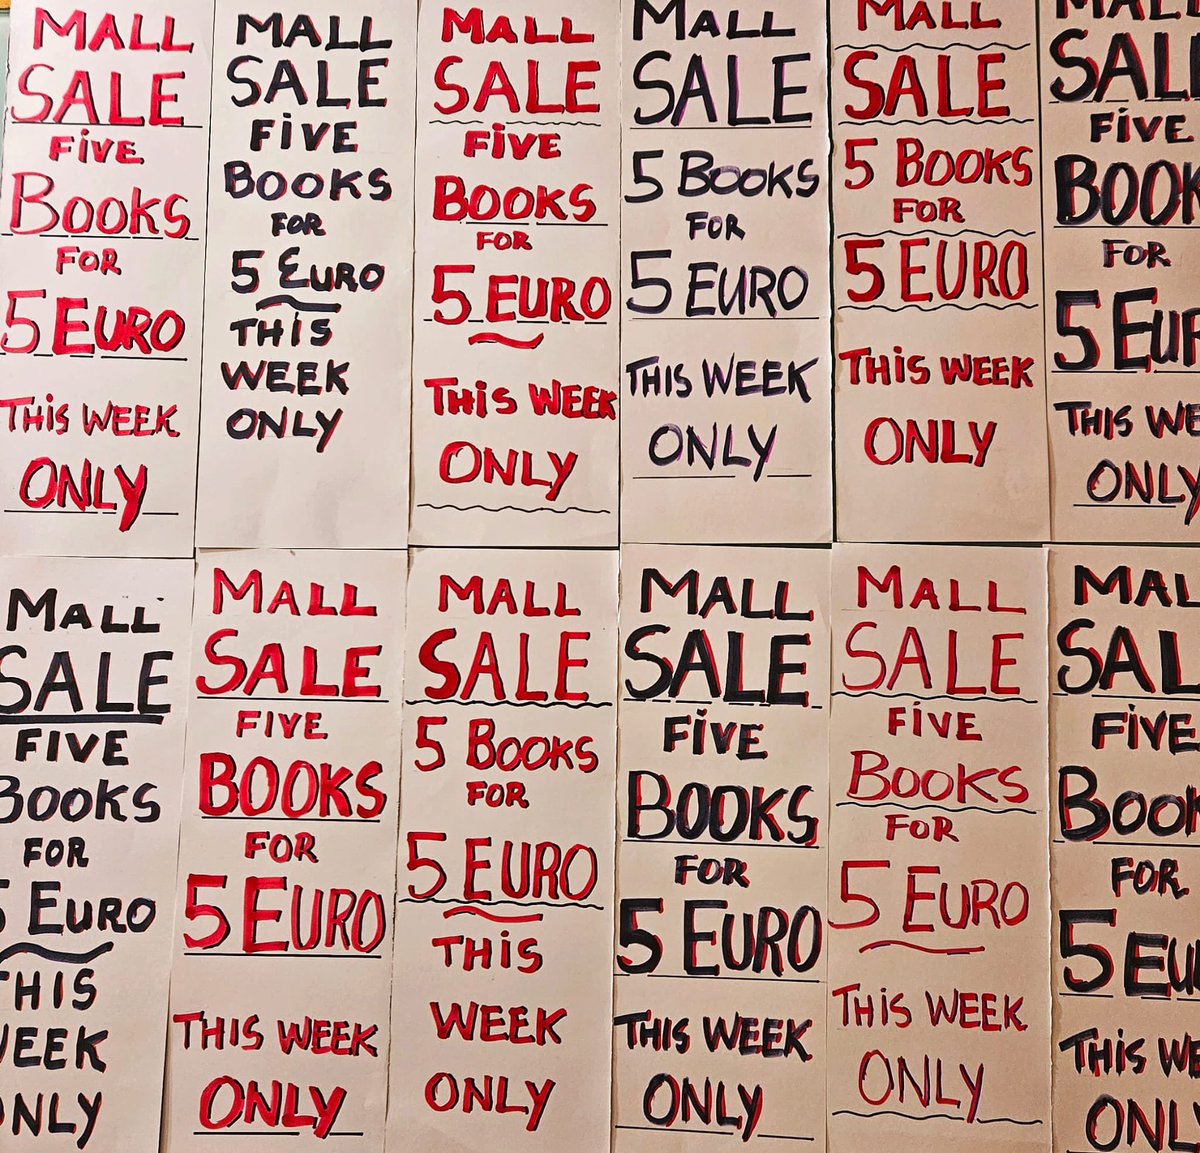 MALL
SALE
FIVE
BOOKS
FOR
5 EURO
THIS WEEK
ONLY
MALL
SALE
FIVE
BOOKS
FOR
5 EURO
THIS
WEEK
ONLY
MALL
SALE
FIVE
BOOKS
FOR
5 EURO
THIS WEEK
ONLY
MALL
SALE
5 BOOKS
FOR
5 EURO
THIS WEEK
ONLY
MALL
SALE
5 BOOKS
FOR
5 EURO
THIS WEEK
ONLY
MALL
SALE
FIVE
BOOK
FOR
5 EUR
THIS WE
ONLY
MALL
SALE
FIVE
BOOKS
FOR
5 EURO
THIS
WEEK
ONLY
MALL
SALE
FIVE
BOOKS
FOR
5 EURO
THIS WEEK
ONLY
MALL
SALE
5 BOOKS
FOR
5 EURO
THIS
WEEK
ONLY
MALL
SALE
FIVE
BOOKS
FOR
5 EURO
THIS WEEK
ONLY
MALL
SALE
FIVE
BOOKS
FOR
5 EURO
THIS WEEK
ONLY
MAL
SAL
FIVE
BOOK
FOR
5 EU
THIS WE
ONLY